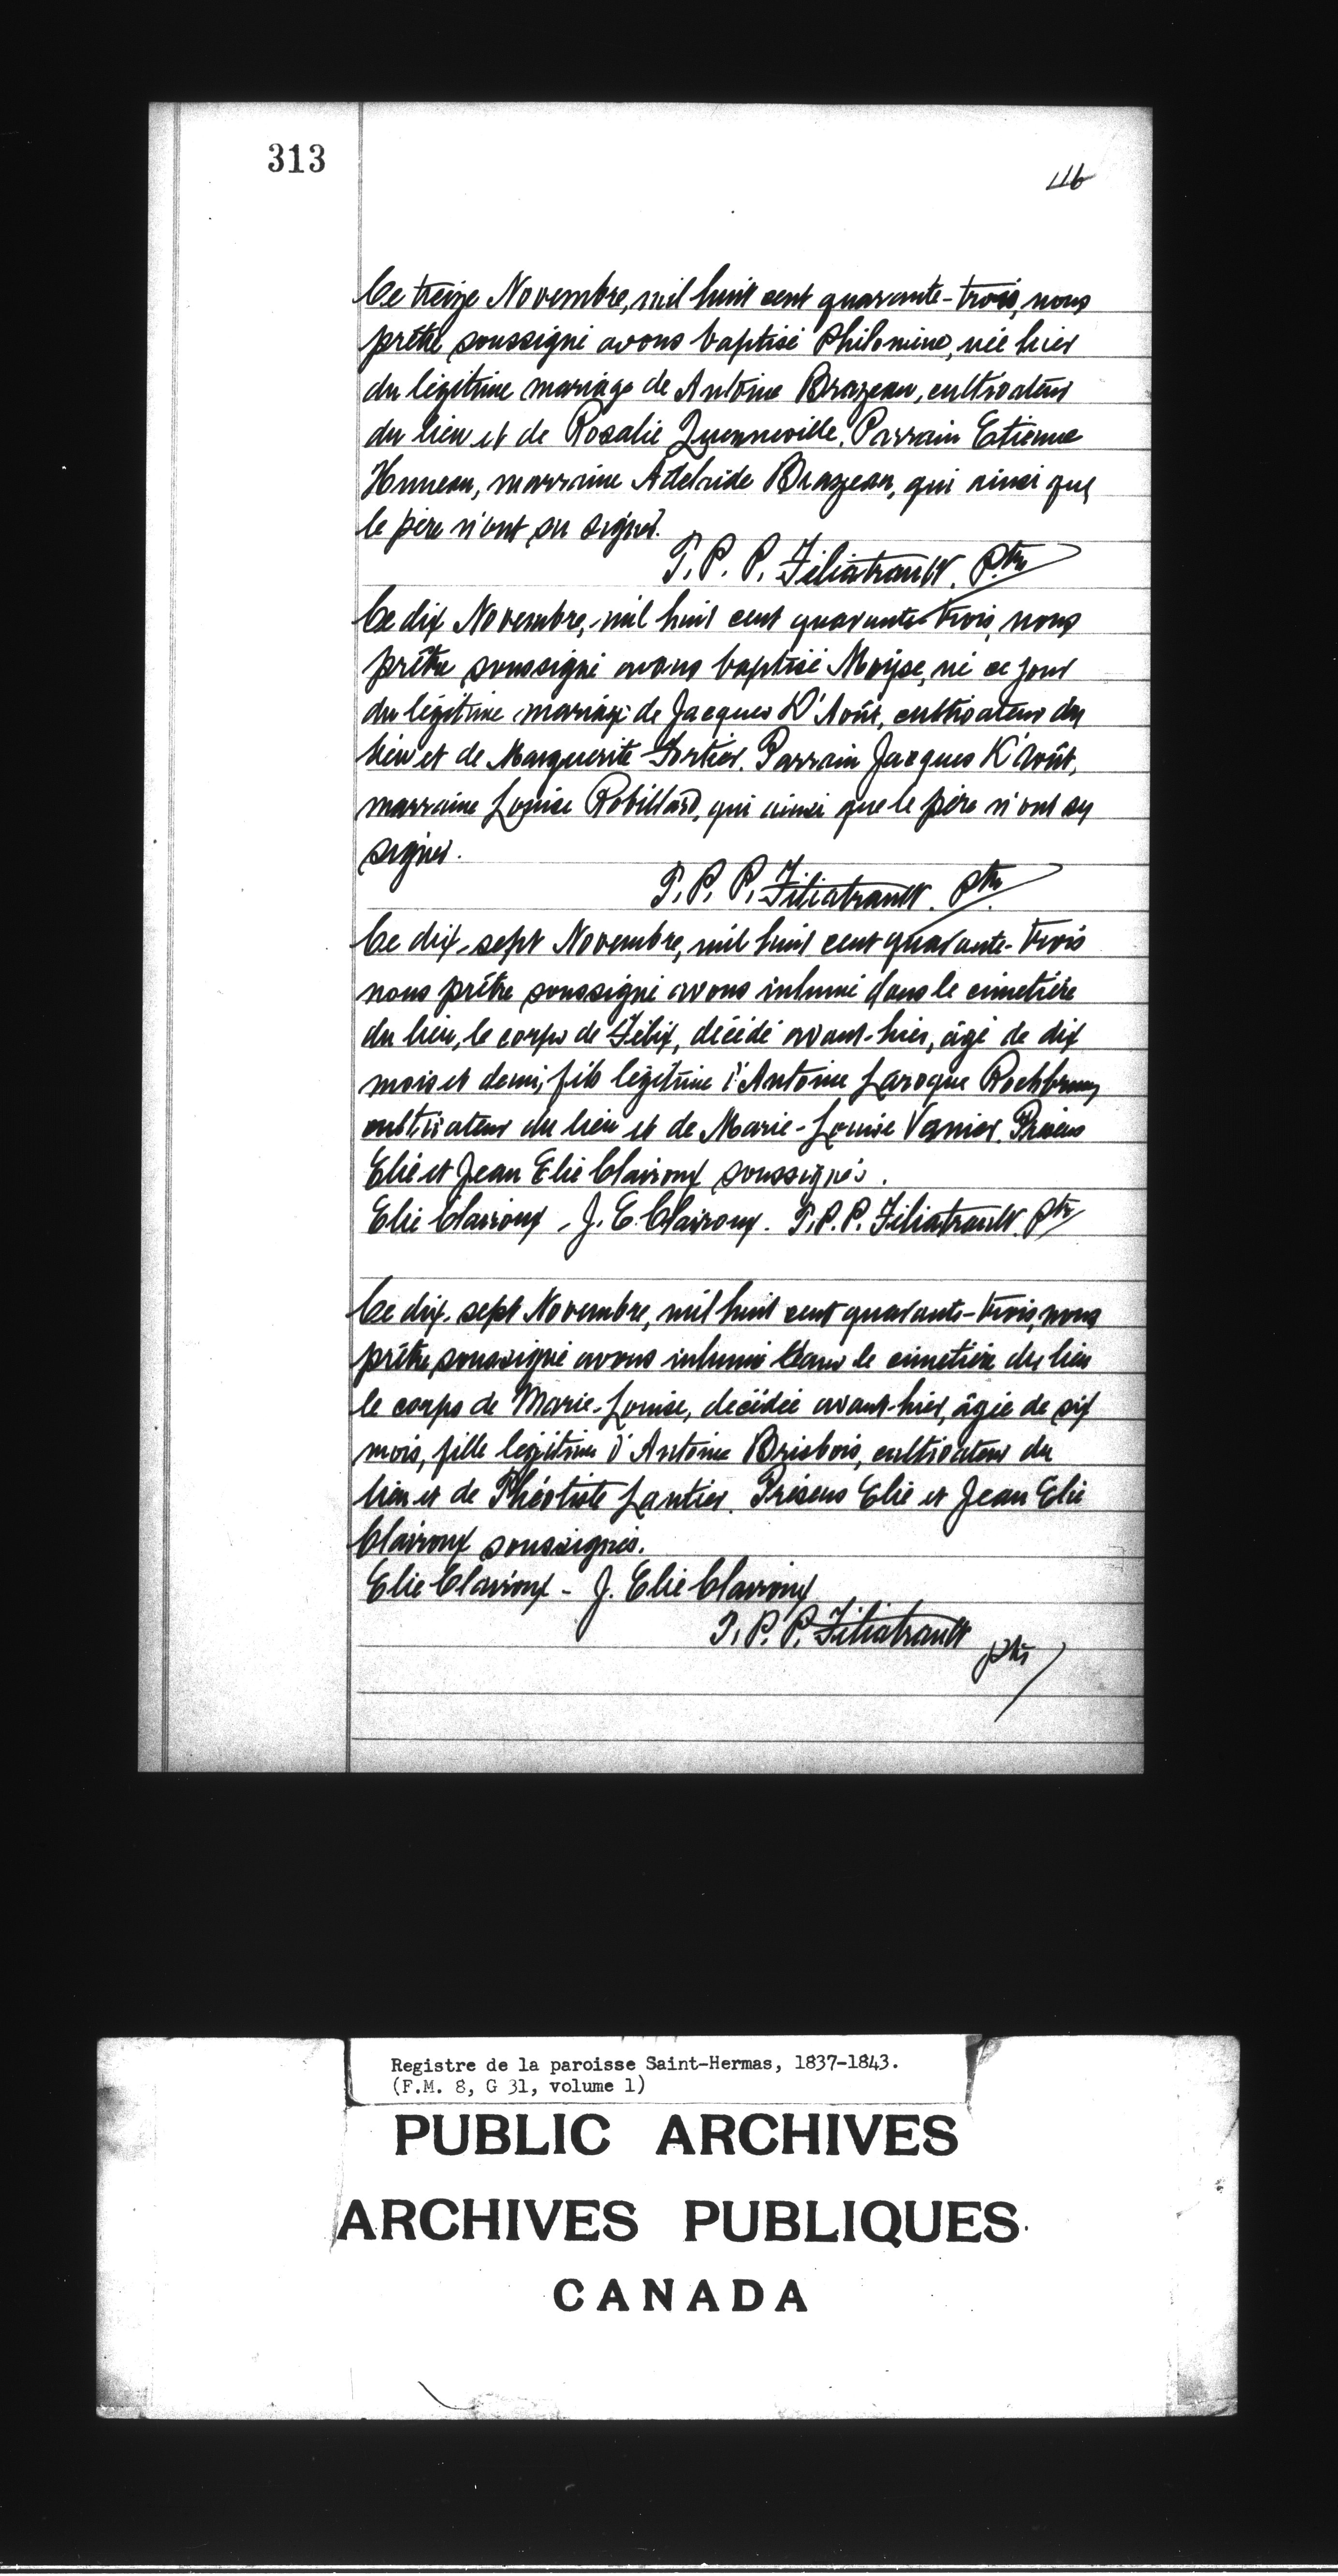 313
116
Ce treize Novembre, mil huit cent quarante-trois, nous
prêtre soussigné avons baptisé Philomène, née hier
du légitime mariage de Antoine Brazeau, cultivateur
du lieu et de Rosalie Quenneville. Parrain Etienne
Huneau, marraine Adelaide Brazeau, qui ainsi que
le père n'ont su signer.
T. P. P. Filiatrault. Ptre
Ce dix Novembre, mil huit cent quarante-trois, nous
prêtre soussigné avons baptisé Moÿse, né ce jour
du légitime mariage de Jacques D'Août, cultivateur du
lieu et de Marguerite Fortier. Parrain Jacques D'Août,
marraine Louise Robillard, qui ainsi que le père n'ont su
signer.
T. P. P. Filiatrault. Ptre
Ce dix-sept Novembre, mil huit cent quarante-trois
nous prêtre soussigné avons inhumé dans le cimetière
du lieu, le corps de Félix, décédé avant-hier, âgé de dix
mois et demi, fils légitime d'Antoine Laroque Rochbrune,
cultivateur du lieu et de Marie-Louise Vanier. Présens
Elie et Jean Elie Clairoux soussignés.
Elie Clairoux - J. E. Clairoux. T. P. P. Filiatrault. Ptre
Ce dix-sept Novembre, mil huit cent quarante-trois, nous
prêtre soussigné avons inhumé dans le cimetière du lieu
le corps de Marie-Louise, decédée avant-hier, âgée de six
mois, fille légitime d'Antoine Brisbois, cultivateur du
lieu et de Théotiste Lantier. Présens Elie et Jean Elie
Clairoux soussignés.
Elie Clairoux - J. Elie Clairoux
T. P. P. Filiatrault
ptre
Registre de la paroisse Saint-Hermas, 1837-1843.
(F.M. 8, G 31, volume 1)
PUBLIC ARCHIVES
ARCHIVES PUBLIQUES
CANADA